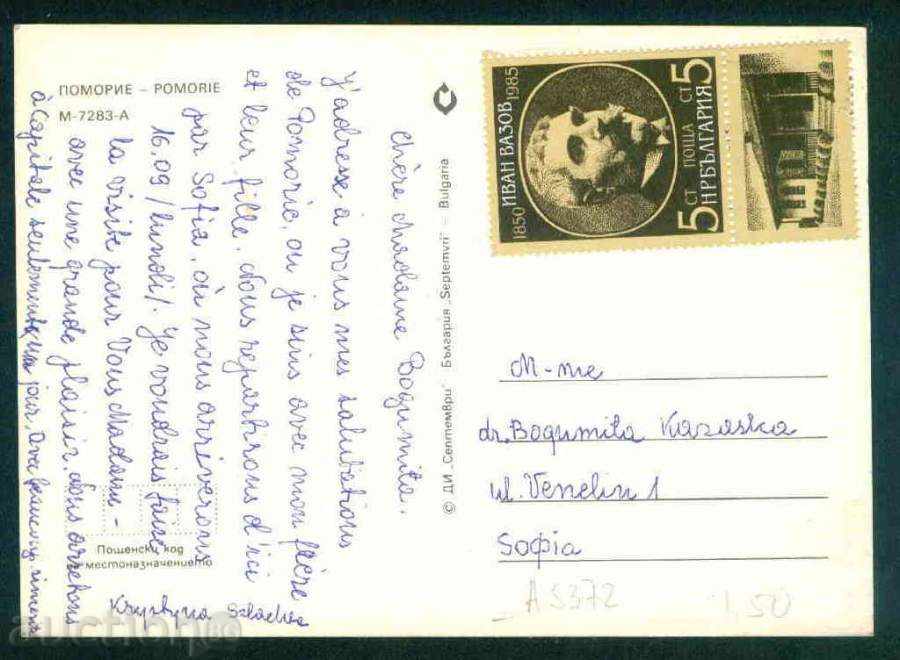 ПОМОРИЕ – POMORIE
М-7283-А
Chère Madame Bogumiła.
J'adresse à vous mes salutations
de Pomorie, ou je suis avec mon frère
et leur fille. Nous repartirons d'ici
par Sofia, où nous arriverons
16.09 /lundi/. Je voudrais faire
la visite pour Vous Madame –
avec une grande plaisir. Nous arretons
à Capitale seulement un jour.
Krystyna
Пощенски код
местоназначението
© ДИ „Септември" България „Septemvri" – Bulgaria
1850 ИВАН ВАЗОВ 1985
5 СТ ПОЩА СТ 5
НРБЪЛГАРИЯ
M-me
dr. Bogumiła Kazaska
ul. Venelin 1
Sofia
A 5372
1,50
auction.bg